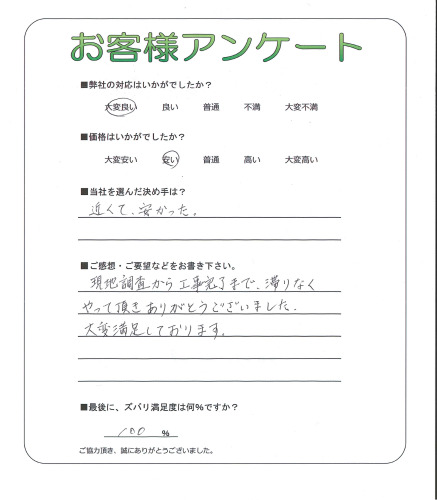 お客様アンケート
■弊社の対応はいかがでしたか？
大変良い 良い 普通 不満 大変不満
■価格はいかがでしたか？
大変安い 安い 普通 高い 大変高い
■当社を選んだ決め手は？
近くて、安かった。
■ご感想・ご要望などをお書き下さい。
現地調査から工事完了まで、滞りなく
やって頂きありがとうございました。
大変満足しております。
■最後に、ズバリ満足度は何％ですか？
100 ％
ご協力頂き、誠にありがとうございました。